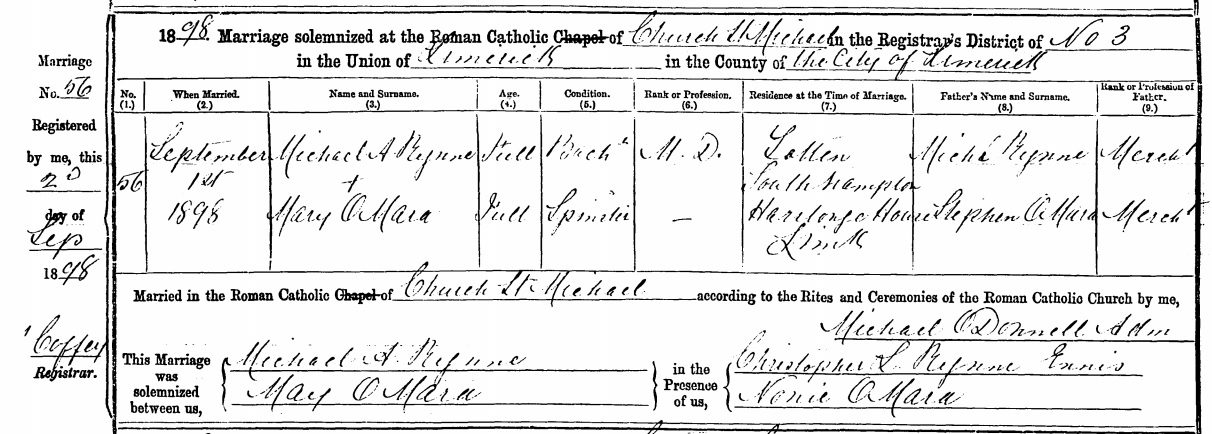 1898. Marriage solemnized at the Roman Catholic Chapel of Church St Michael in the Registrar's District of No 3
in the Union of Limerick in the County of the City of Limerick
Marriage
No. 56
Registered
by me, this
2d
day of
Sep
1898
Coffey
Registrar.
No. (1.) When Married. (2.) Name and Surname. (3.) Age. (4.) Condition. (5.) Rank or Profession. (6.) Residence at the Time of Marriage. (7.) Father's Name and Surname. (8.) Rank or Profession of Father. (9.)
September Michael A Rynne Full Bach M. D. Totten Michl Rynne Mercht
56 1st + South hampton
1898 Mary O Mara Full Spinster — Hartlonge House Stephen O Mara Mercht
Limk
Married in the Roman Catholic Chapel of Church St Michael according to the Rites and Ceremonies of the Roman Catholic Church by me,
Michael O Donnell Adm
This Marriage was solemnized between us, Michael A. Rynne
Mary O Mara
in the Presence of us, Christopher L Rynne Ennis
Nonie O Mara